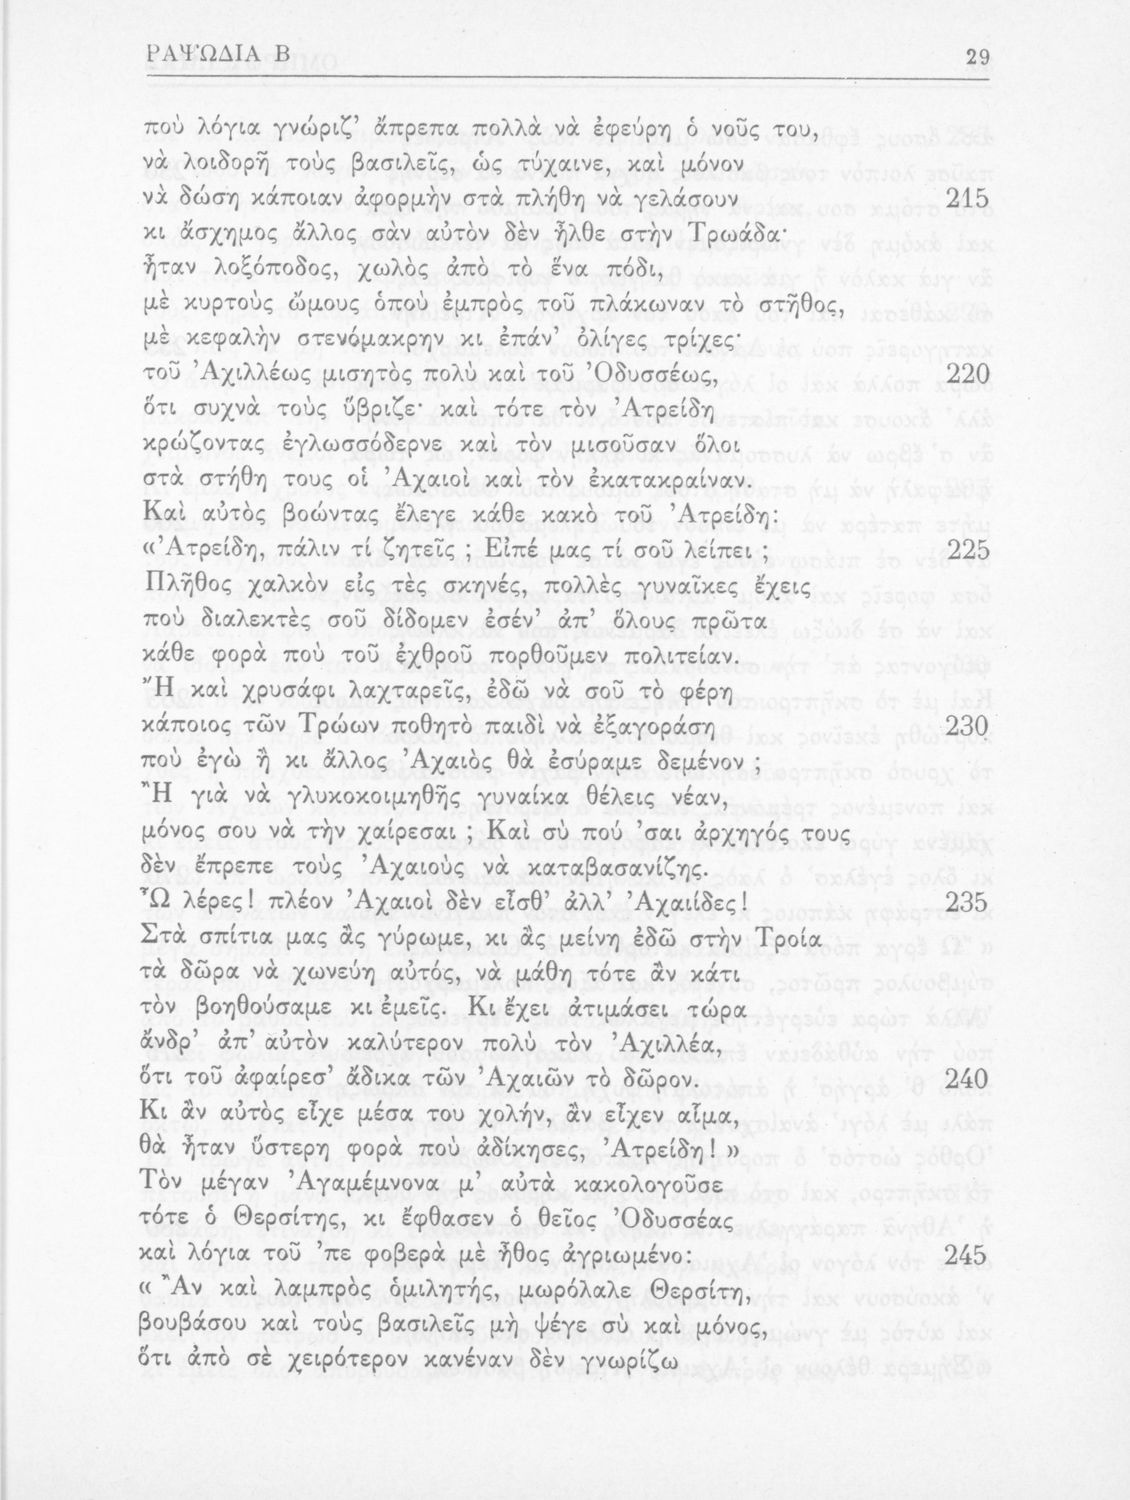 ΡΑΨΩΔΙΑ Β 29
ποὺ λόγια γνώριζ’ ἄπρεπα πολλὰ νὰ ἐφεύρη ὁ νοῦς του,
νὰ λοιδορῆ τοὺς βασιλεῖς, ὡς τύχαινε, καὶ μόνον
νὰ δώση κάποιαν ἀφορμὴν στὰ πλήθη νὰ γελάσουν 215
κι ἄσχημος ἄλλος σὰν αὐτὸν δὲν ἦλθε στὴν Τρωάδα·
ἦταν λοξόποδος, χωλὸς ἀπὸ τὸ ἕνα πόδι,
μὲ κυρτοὺς ὤμους ὁποὺ ἐμπρὸς τοῦ πλάκωναν τὸ στῆθος,
μὲ κεφαλὴν στενόμακρην κι ἐπάν’ ὀλίγες τρίχες·
τοῦ ’Αχιλλέως μισητὸς πολὺ καὶ τοῦ ’Οδυσσέως, 220
ὅτι συχνὰ τοὺς ὕβριζε· καὶ τότε τὸν ’Ατρείδη
κρώζοντας ἐγλωσσόδερνε καὶ τὸν μισοῦσαν ὅλοι
στὰ στήθη τους οἱ ’Αχαιοὶ καὶ τὸν ἐκατακραίναν.
Καὶ αὐτὸς βοώντας ἔλεγε κάθε κακὸ τοῦ ’Ατρείδη:
«’Ατρείδη, πάλιν τί ζητεῖς ; Εἰπέ μας τί σοῦ λείπει ; 225
Πλῆθος χαλκὸν εἰς τὲς σκηνές, πολλὲς γυναῖκες ἔχεις
ποὺ διαλεκτὲς σοῦ δίδομεν ἐσέν’ ἀπ’ ὅλους πρῶτα
κάθε φορὰ ποὺ τοῦ ἐχθροῦ πορθοῦμεν πολιτείαν.
Ἢ καὶ χρυσάφι λαχταρεῖς, ἐδῶ νὰ σοῦ τὸ φέρη
κάποιος τῶν Τρώων ποθητὸ παιδὶ νὰ ἐξαγοράση 230
ποὺ ἐγὼ ἢ κι ἄλλος ’Αχαιὸς θὰ ἐσύραμε δεμένον ;
Ἢ γιὰ νὰ γλυκοκοιμηθῆς γυναίκα θέλεις νέαν,
μόνος σου νὰ τὴν χαίρεσαι ; Καὶ σὺ πού ’σαι ἀρχηγός τους
δὲν ἔπρεπε τοὺς ’Αχαιοὺς νὰ καταβασανίζης.
Ὦ λέρες! πλέον ’Αχαιοὶ δὲν εἶσθ’ ἀλλ’ ’Αχαιίδες! 235
Στὰ σπίτια μας ἂς γύρωμε, κι ἂς μείνη ἐδῶ στὴν Τροία
τὰ δῶρα νὰ χωνεύη αὐτός, νὰ μάθη τότε ἂν κάτι
τὸν βοηθούσαμε κι ἐμεῖς. Κι ἔχει ἀτιμάσει τώρα
ἄνδρ’ ἀπ’ αὐτὸν καλύτερον πολὺ τὸν ’Αχιλλέα,
ὅτι τοῦ ἀφαίρεσ’ ἄδικα τῶν ’Αχαιῶν τὸ δῶρον. 240
Κι ἂν αὐτὸς εἶχε μέσα του χολήν, ἂν εἶχεν αἷμα,
θὰ ἦταν ὕστερη φορὰ ποὺ ἀδίκησες, ’Ατρείδη! »
Τὸν μέγαν ’Αγαμέμνονα μ’ αὐτὰ κακολογοῦσε
τότε ὁ Θερσίτης, κι ἔφθασεν ὁ θεῖος ’Οδυσσέας
καὶ λόγια τοῦ ’πε φοβερὰ μὲ ἦθος ἀγριωμένο: 245
« Ἂν καὶ λαμπρὸς ὁμιλητής, μωρόλαλε Θερσίτη,
βουβάσου καὶ τοὺς βασιλεῖς μὴ ψέγε σὺ καὶ μόνος,
ὅτι ἀπὸ σὲ χειρότερον κανέναν δὲν γνωρίζω